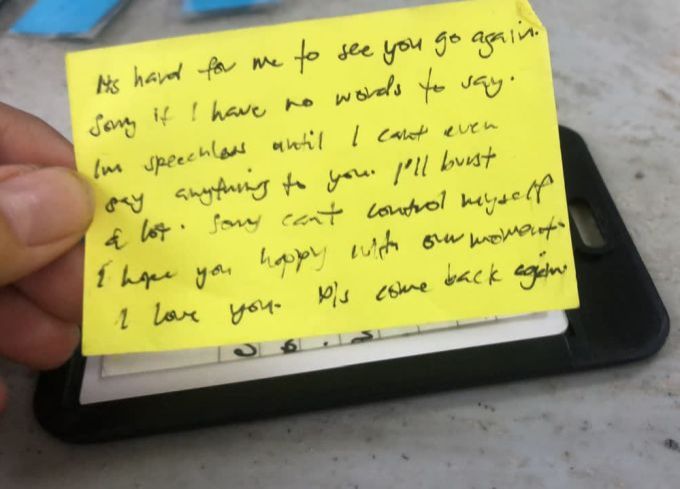 Its hard for me to see you go again.
Sorry if I have no words to say.
Im speechless until I cant even
say anything to you. I'll burst
a lot. Sorry can't control myself
I hope you happy with our moment.
I love you. Pls come back again.